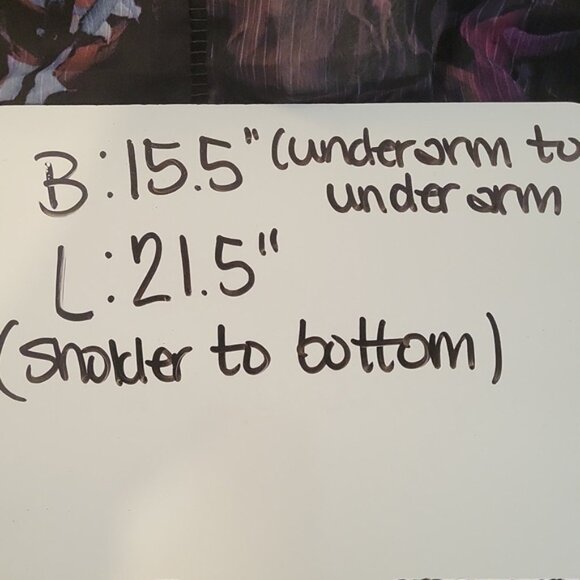 B: 15.5" (underarm to
underarm
L: 21.5"
(sholder to bottom)